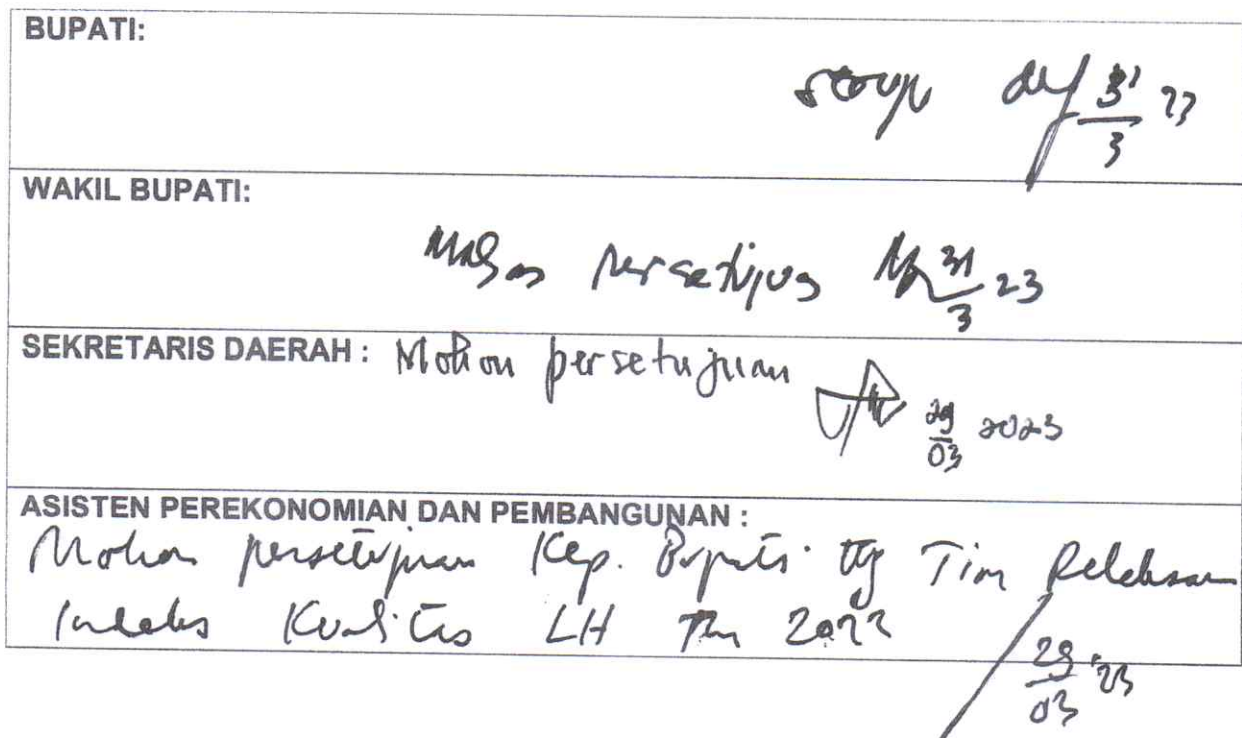 BUPATI:
setuju 31/3 23
WAKIL BUPATI:
Mohon persetujuan 31/3 23
SEKRETARIS DAERAH : Mohon persetujuan
29/03 2023
ASISTEN PEREKONOMIAN DAN PEMBANGUNAN :
Mohon persetujuan Kep. Bupati ttg Tim Pelaksana
Indeks Kualitas LH Thn
29/03 '23